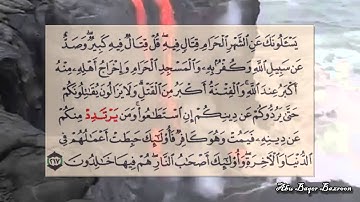 يَسْـَٔلُونَكَ عَنِ ٱلشَّهْرِ ٱلْحَرَامِ قِتَالٍ فِيهِ ۖ قُلْ قِتَالٌ فِيهِ كَبِيرٌ ۖ وَصَدٌّ
عَن سَبِيلِ ٱللَّهِ وَكُفْرٌۢ بِهِۦ وَٱلْمَسْجِدِ ٱلْحَرَامِ وَإِخْرَاجُ أَهْلِهِۦ مِنْهُ
أَكْبَرُ عِندَ ٱللَّهِ ۚ وَٱلْفِتْنَةُ أَكْبَرُ مِنَ ٱلْقَتْلِ ۗ وَلَا يَزَالُونَ يُقَٰتِلُونَكُمْ
حَتَّىٰ يَرُدُّوكُمْ عَن دِينِكُمْ إِنِ ٱسْتَطَٰعُوا۟ ۚ وَمَن يَرْتَدِدْ مِنكُمْ
عَن دِينِهِۦ فَيَمُتْ وَهُوَ كَافِرٌ فَأُو۟لَٰٓئِكَ حَبِطَتْ أَعْمَٰلُهُمْ فِى
ٱلدُّنْيَا وَٱلْـَٔاخِرَةِ ۖ وَأُو۟لَٰٓئِكَ أَصْحَٰبُ ٱلنَّارِ ۖ هُمْ فِيهَا خَٰلِدُونَ ٢١٧
Abu Bager Bazroon